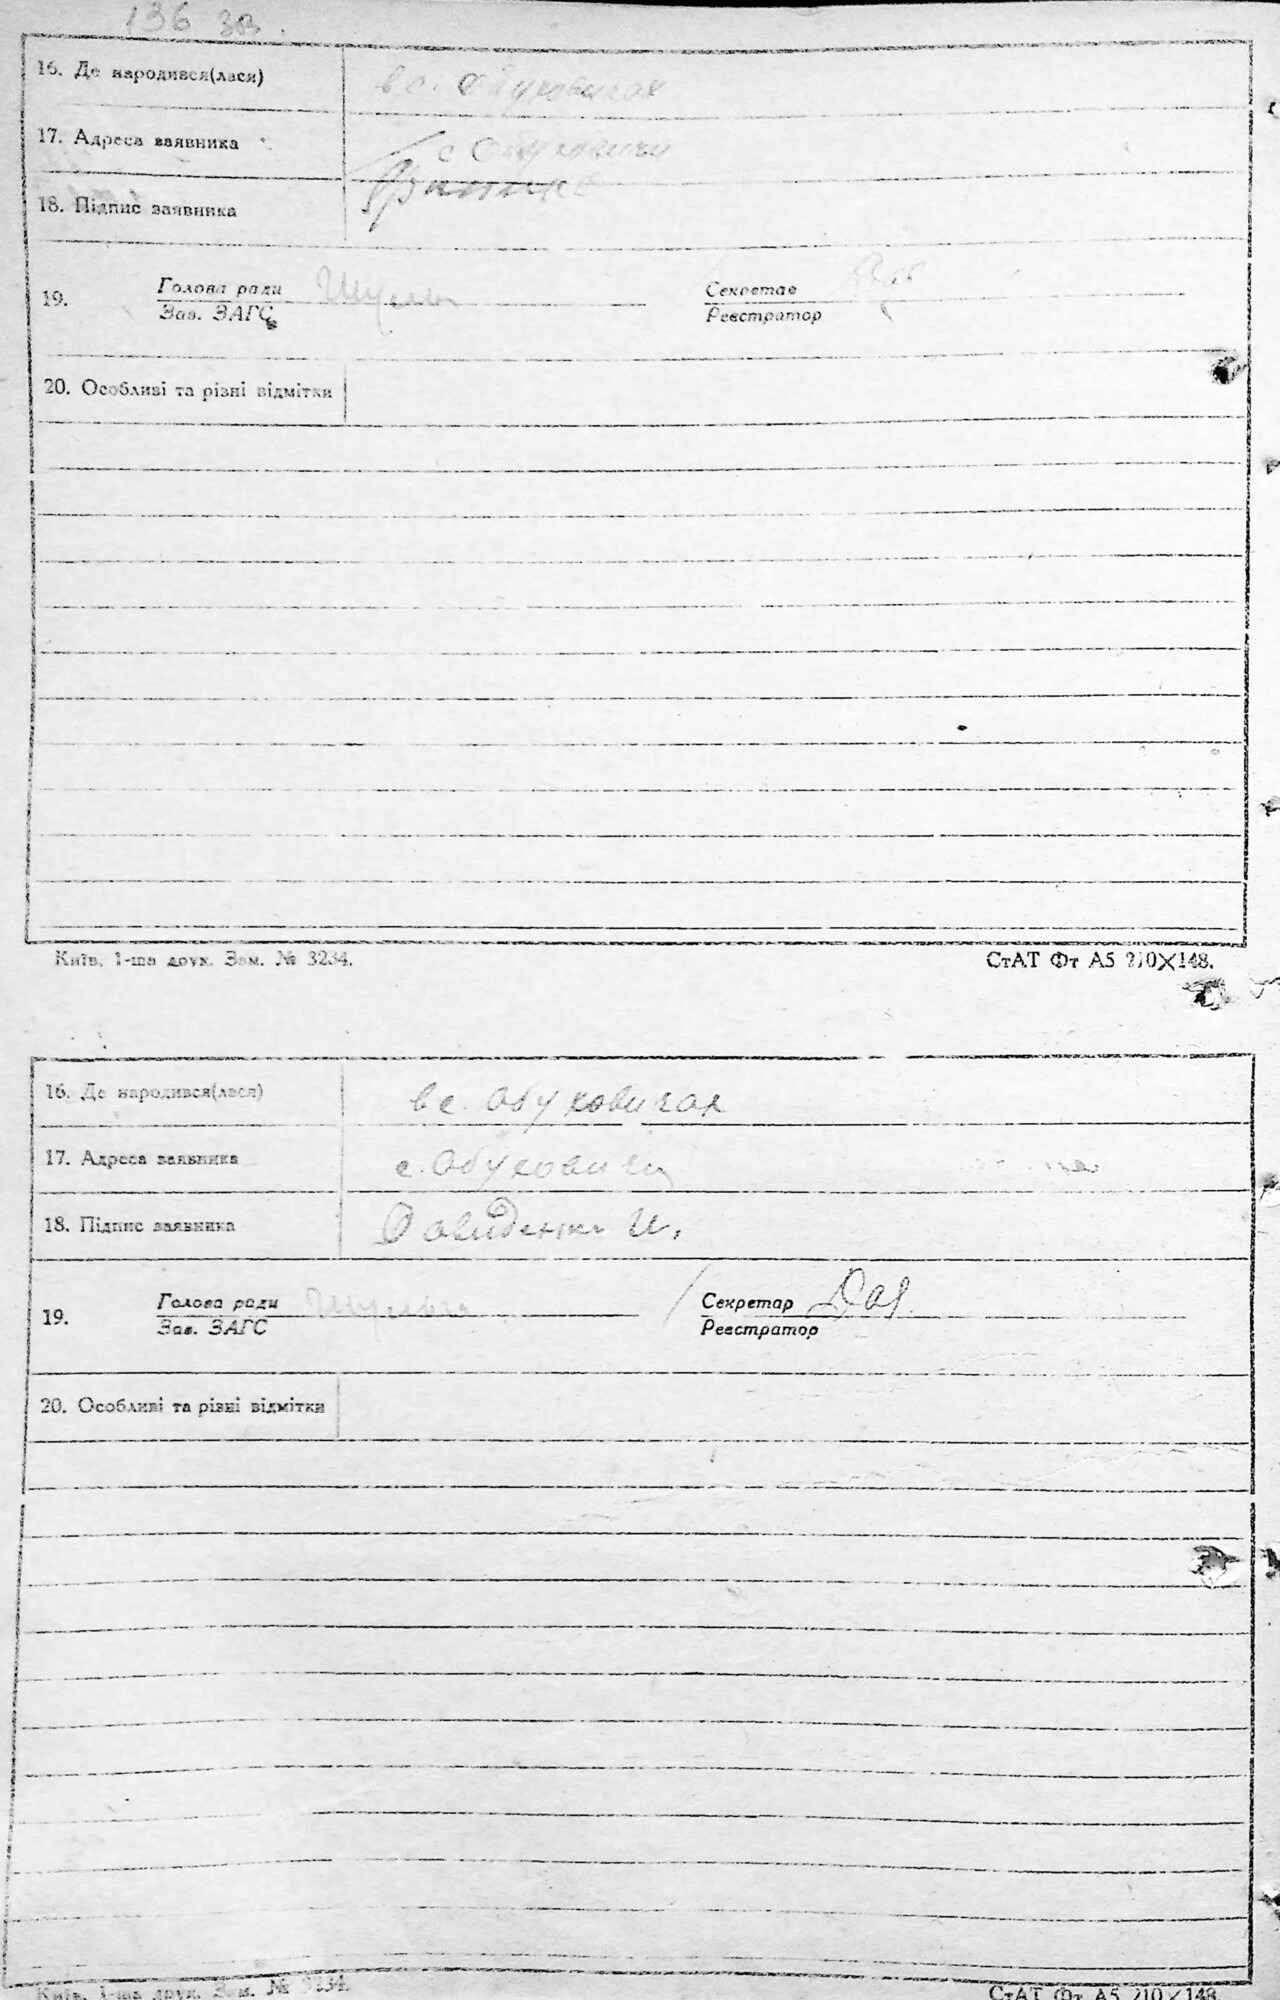 136 зв.
16. Де народився(лася) в с. Обуховичах
17. Адреса заявника с Обуховичи
18. Підпис заявника
19. Голова ради Секретар
Зав. ЗАГС Реєстратор
20. Особливі та різні відмітки
Київ, 1-ша друк. Зам. № 3234. СтАТ Фт А5 210×148.
16. Де народився(лася) в с. Обуховичах
17. Адреса заявника с. Обуховичи
18. Підпис заявника Давиденко И.
19. Голова ради Секретар
Зав. ЗАГС Реєстратор
20. Особливі та різні відмітки
Київ, 1-ша друк. Зам. № 3234. СтАТ Фт А5 210×148.